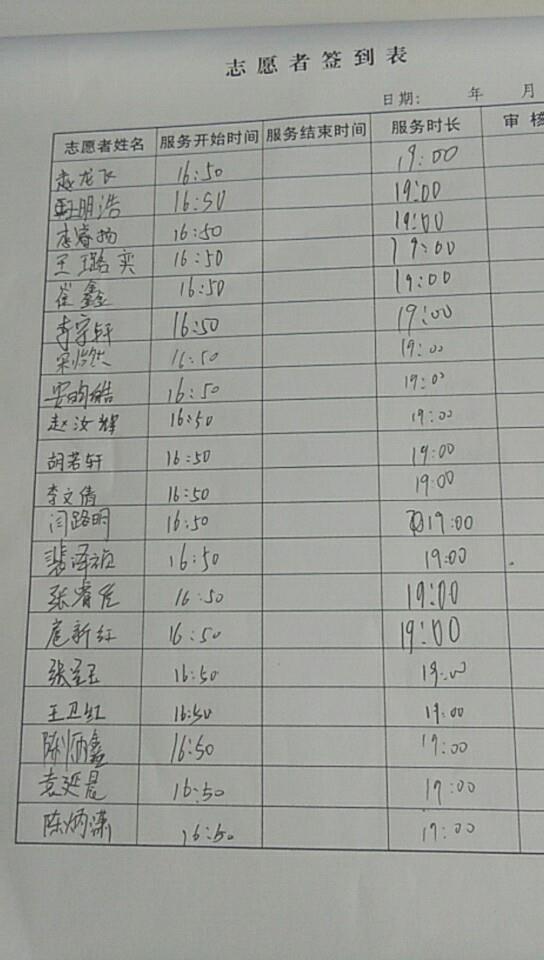 志愿者签到表
日期: 年 月
志愿者姓名 服务开始时间 服务结束时间 服务时长 审核
赵龙飞 16:50 19:00
明浩 16:50 19:00
李睿扬 16:50 19:00
王璐奕 16:50 19:00
崔鑫 16:50 19:00
李宇轩 16:50 19:00
宋怡然 16:50 19:00
安昀皓 16:50 19:00
赵汝辉 16:50 19:00
胡若轩 16:50 19:00
李文倩 16:50 19:00
闫路明 16:50 19:00
裴泽祯 16:50 19:00
张睿佳 16:50 19:00
扈新红 16:50 19:00
张 16:50 19:00
王卫红 16:50 19:00
陈炳鑫 16:50 19:00
袁延晨 16:50 19:00
陈炳潇 16:50 19:00